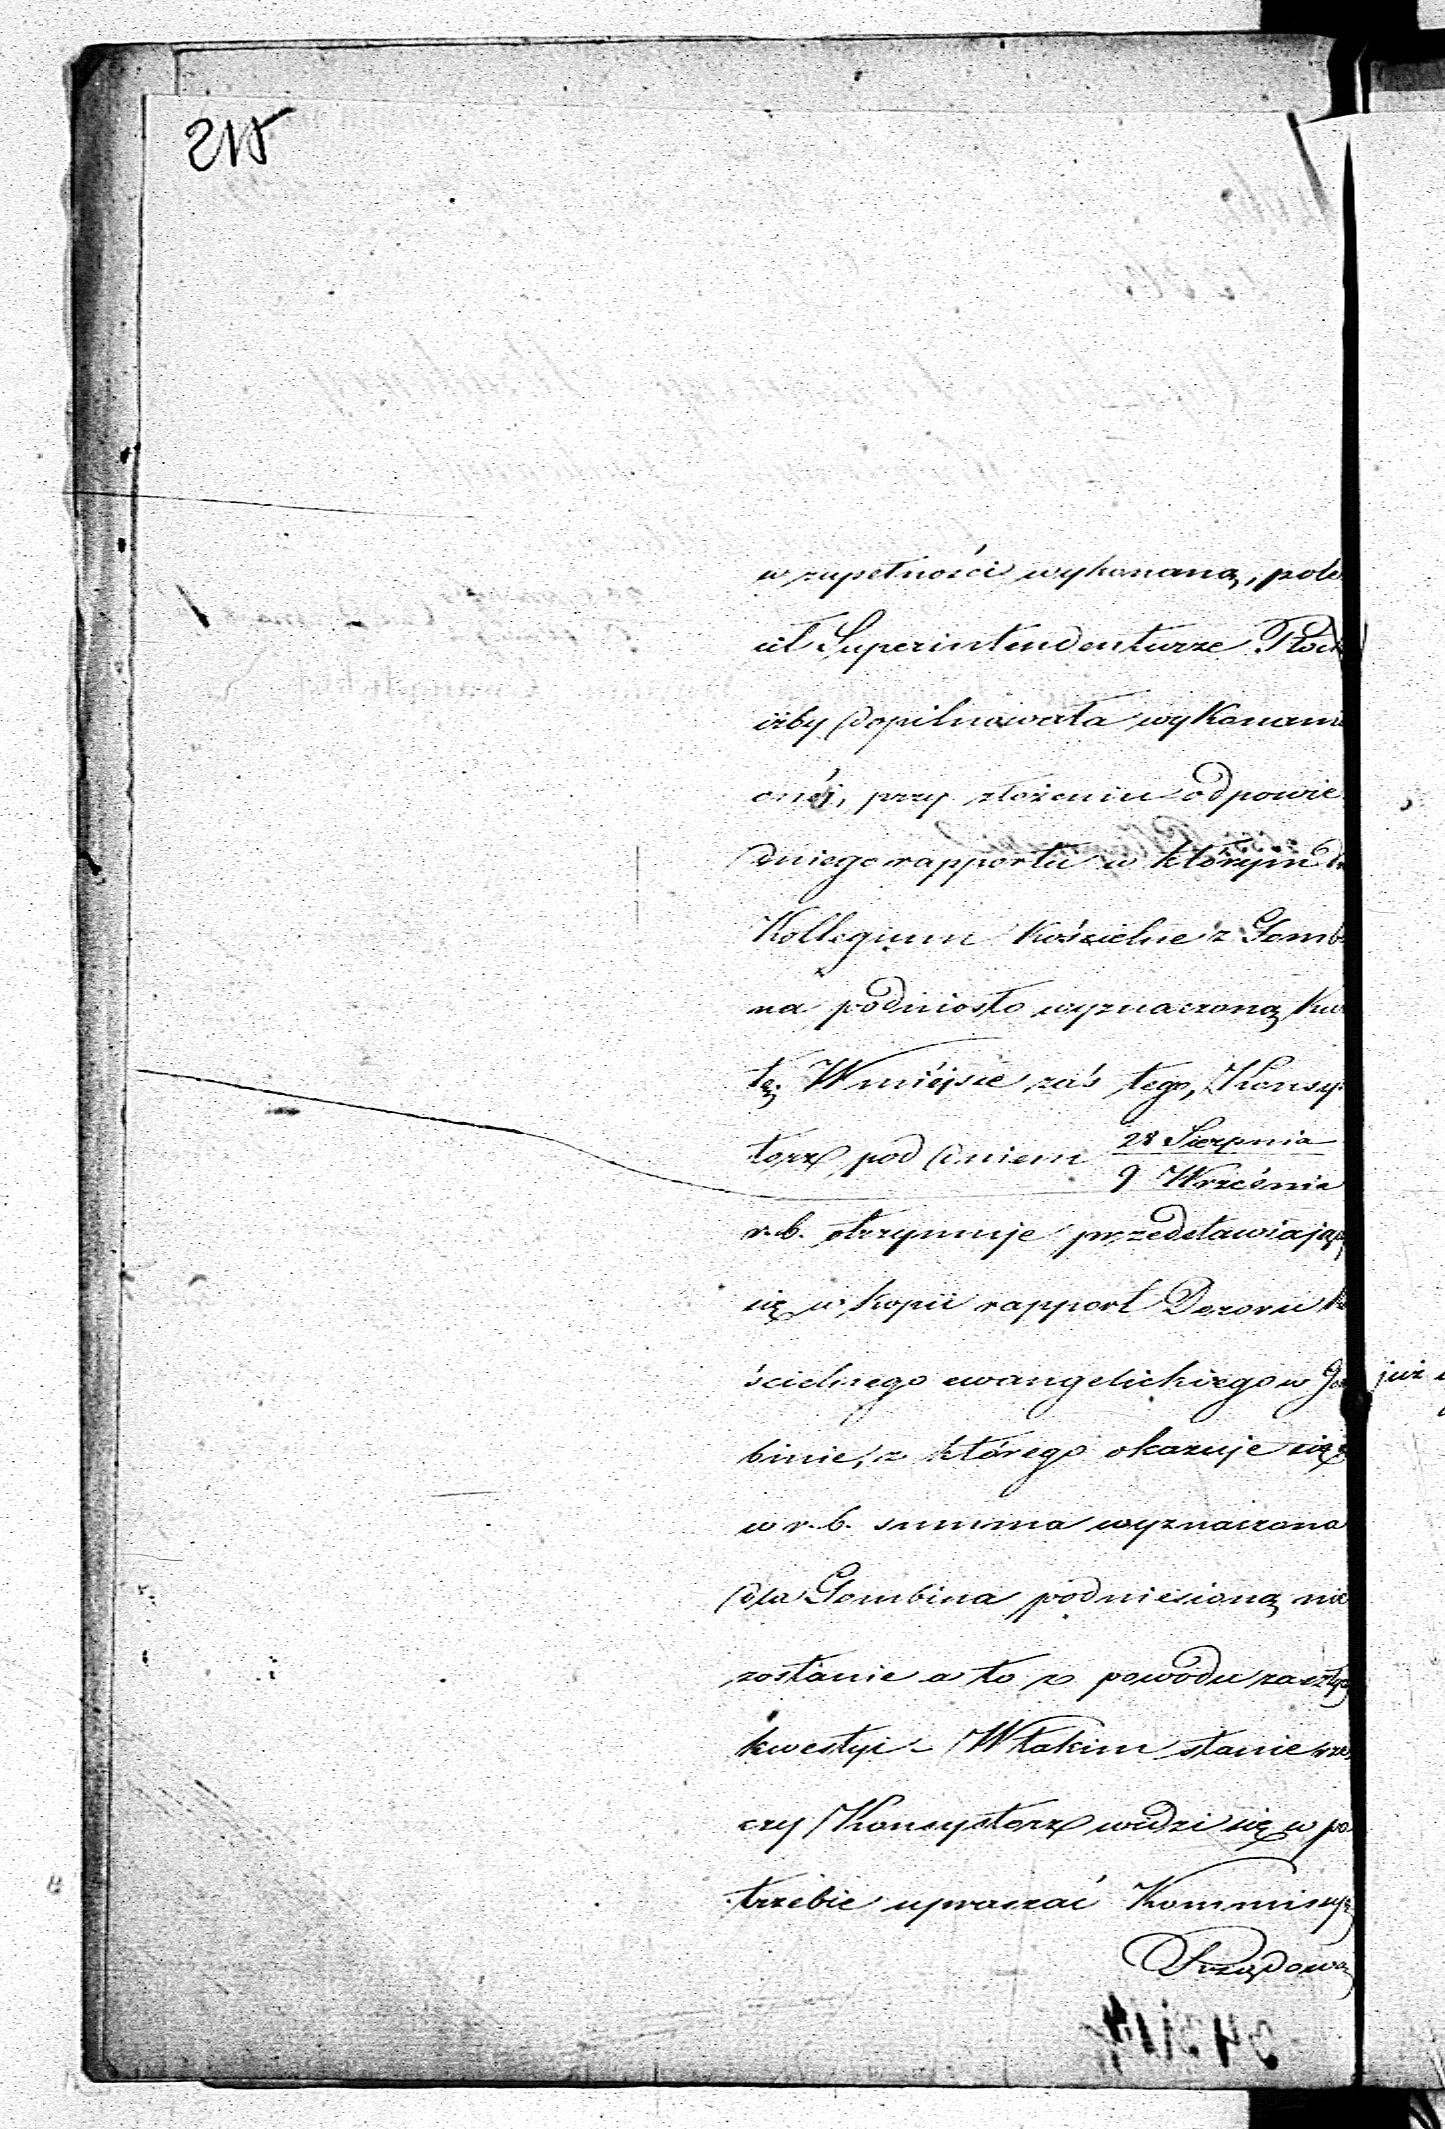 w zupełności wykonaną, pole
cił Superintendenturze Płock
iżby dopilnowała wykonani
onéj, przy złożeniu odpowie
dniego rapportu w którym
Kollegium Kościelne z Gomb
na podniosło wyznaczoną kwo
tę. W miéjsce zaś tego, Konsy
torz pod dniem 28 Sierpnia
9 Września
r. b. otrzymuje przedstawiają
się w kopii rapport Dozoru K
ścielnego ewangelickiego w Go
binie, z którego okazuje się
w r. b. summa wyznaczona
dla Gombina podniesioną nie
zostanie a to z powodu zaszłyc
kwestyi - W takim stanie rze
czy Konsystorz widzi się w po
trzebie upraszać Kommissyą
Rządową
już